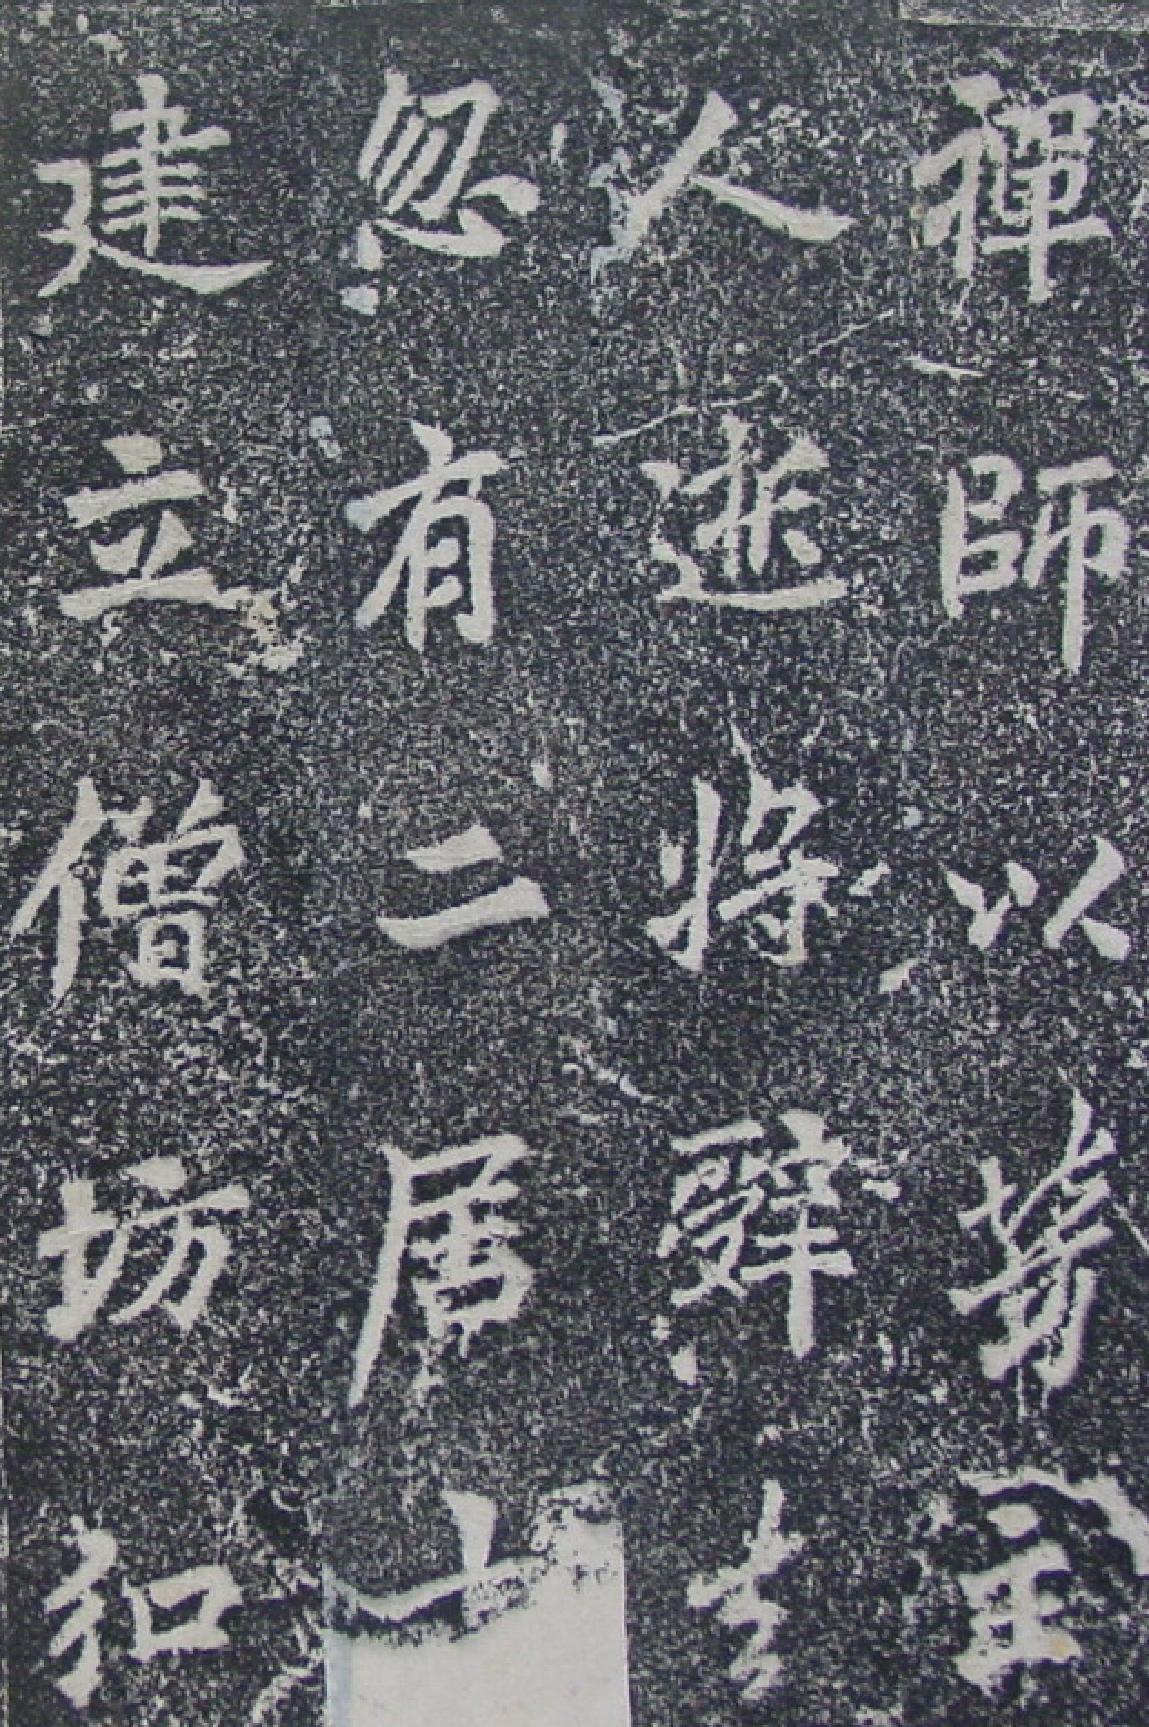 禪師以
人逝將辭去
忽有二居
建立僧坊